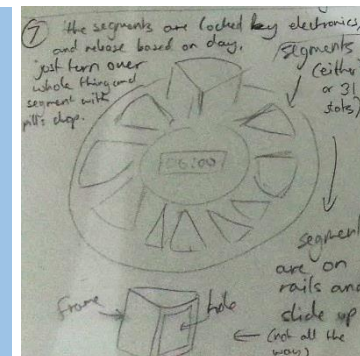 7 the segments are locked by electronics,
and release based on day.
just turn over
whole thing and
segment with
pills drop.
segments
(either
or 31
slots)
06:00
segment
are on
rails and
slide up
(not all the
way)
frame
hole